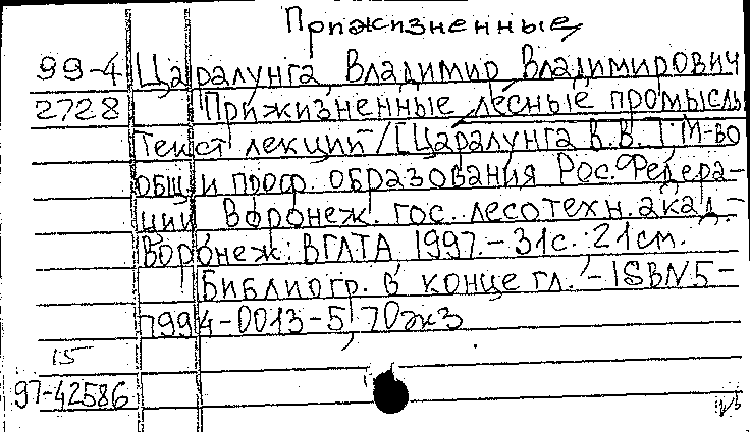 Прижизненные
99-4 Царалунга, Владимир Владимирович
2728 Прижизненные лесные промыслы
Текст лекций / [Царалунга В.В.]; М-во
общ. и проф. образования Рос. Федера-
ции Воронеж. гос. лесотехн. акад.-
Воронеж: ВГЛТА, 1997.- 31с.: 21см.
Библиогр. в конце гл. - ISBN 5-
7994-0013-5, 70экз
15
97-42586